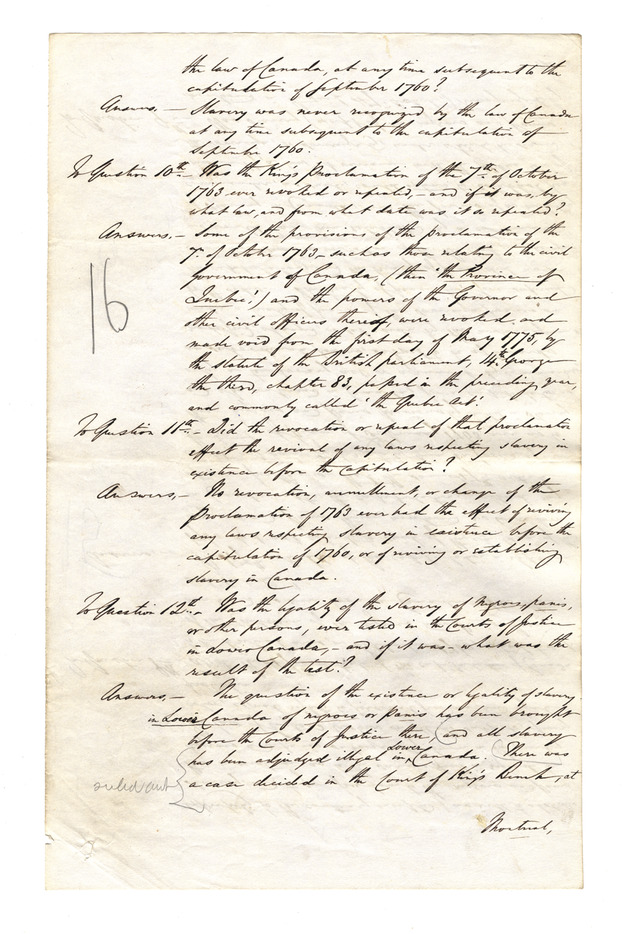 the law of Canada, at any time subsequent to the
capitulation of September 1760?
Answers, — Slavery was never recognized by the law of Canada
at any time subsequent to the capitulation of
September 1760.
To Question 10th — Was the King's Proclamation of the 7th of October
1763 ever revoked or repealed, — and if it was, by
what law, and from what date was it so repealed?
Answers, — Some of the provisions of the proclamation of the
7. of October 1763 — such as those relating to the civil
government of Canada, (then 'the Province of
Quebec') and the powers of the Governor and
other civil officers thereof, were revoked and
16
made void from the first day of May 1775, by
the statute of the British parliament, 14th George
the third, chapter 83, passed in the preceding year,
and commonly called 'the Quebec Act.'
To Question 11th — Did the revocation or repeal of that proclamation
effect the revival of any laws respecting slavery in
existence before the capitulation?
Answers, — No revocation, annullment, or change of the
Proclamation of 1763 ever had the effect of reviving
any laws respecting slavery in existence before the
capitulation of 1760, or of reviving or establishing
slavery in Canada.
To Question 12th — Was the legality of the slavery of negroes, panis,
or other persons, ever tested in the Courts of Justice
in Lower Canada, — and if it was — what was the
result of the test?
Answers, — The question of the existence or legality of slavery
in Lower Canada of negroes or Panis has been brought
before the Courts of Justice there, (and all slavery
has been adjudged illegal in Lower Canada. (There was
a case decided in the Court of King's Bench, at
Montreal,